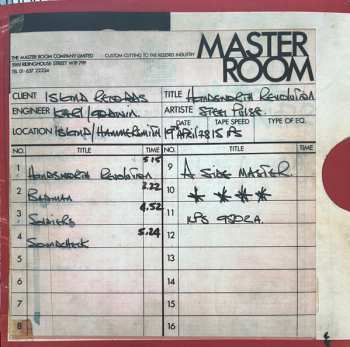 MASTER ROOM
THE MASTER ROOM COMPANY LIMITED CUSTOM CUTTING TO THE RECORD INDUSTRY
RIDINGHOUSE STREET W1P 7PP
TEL 01-637 22234
CLIENT ISLAND RECORDS TITLE HANDSWORTH REVOLUTION
ENGINEER KARL/GODWIN ARTISTE STEEL PULSE
LOCATION ISLAND/HAMMERSMITH DATE TAPE SPEED TYPE OF EQ.
19TH APRIL 78 15 IPS
NO. TITLE TIME NO. TITLE TIME
1 HANDSWORTH REVOLUTION 5.15 9 A SIDE MASTER
2 BADMAN 3.22 10 ✶ ✶ ✶ ✶
3 SOLDIERS 4.52 11 ILPS 9502 A.
4 SOUNDCHECK 5.24 12
5 13
6 14
7 15
8 16